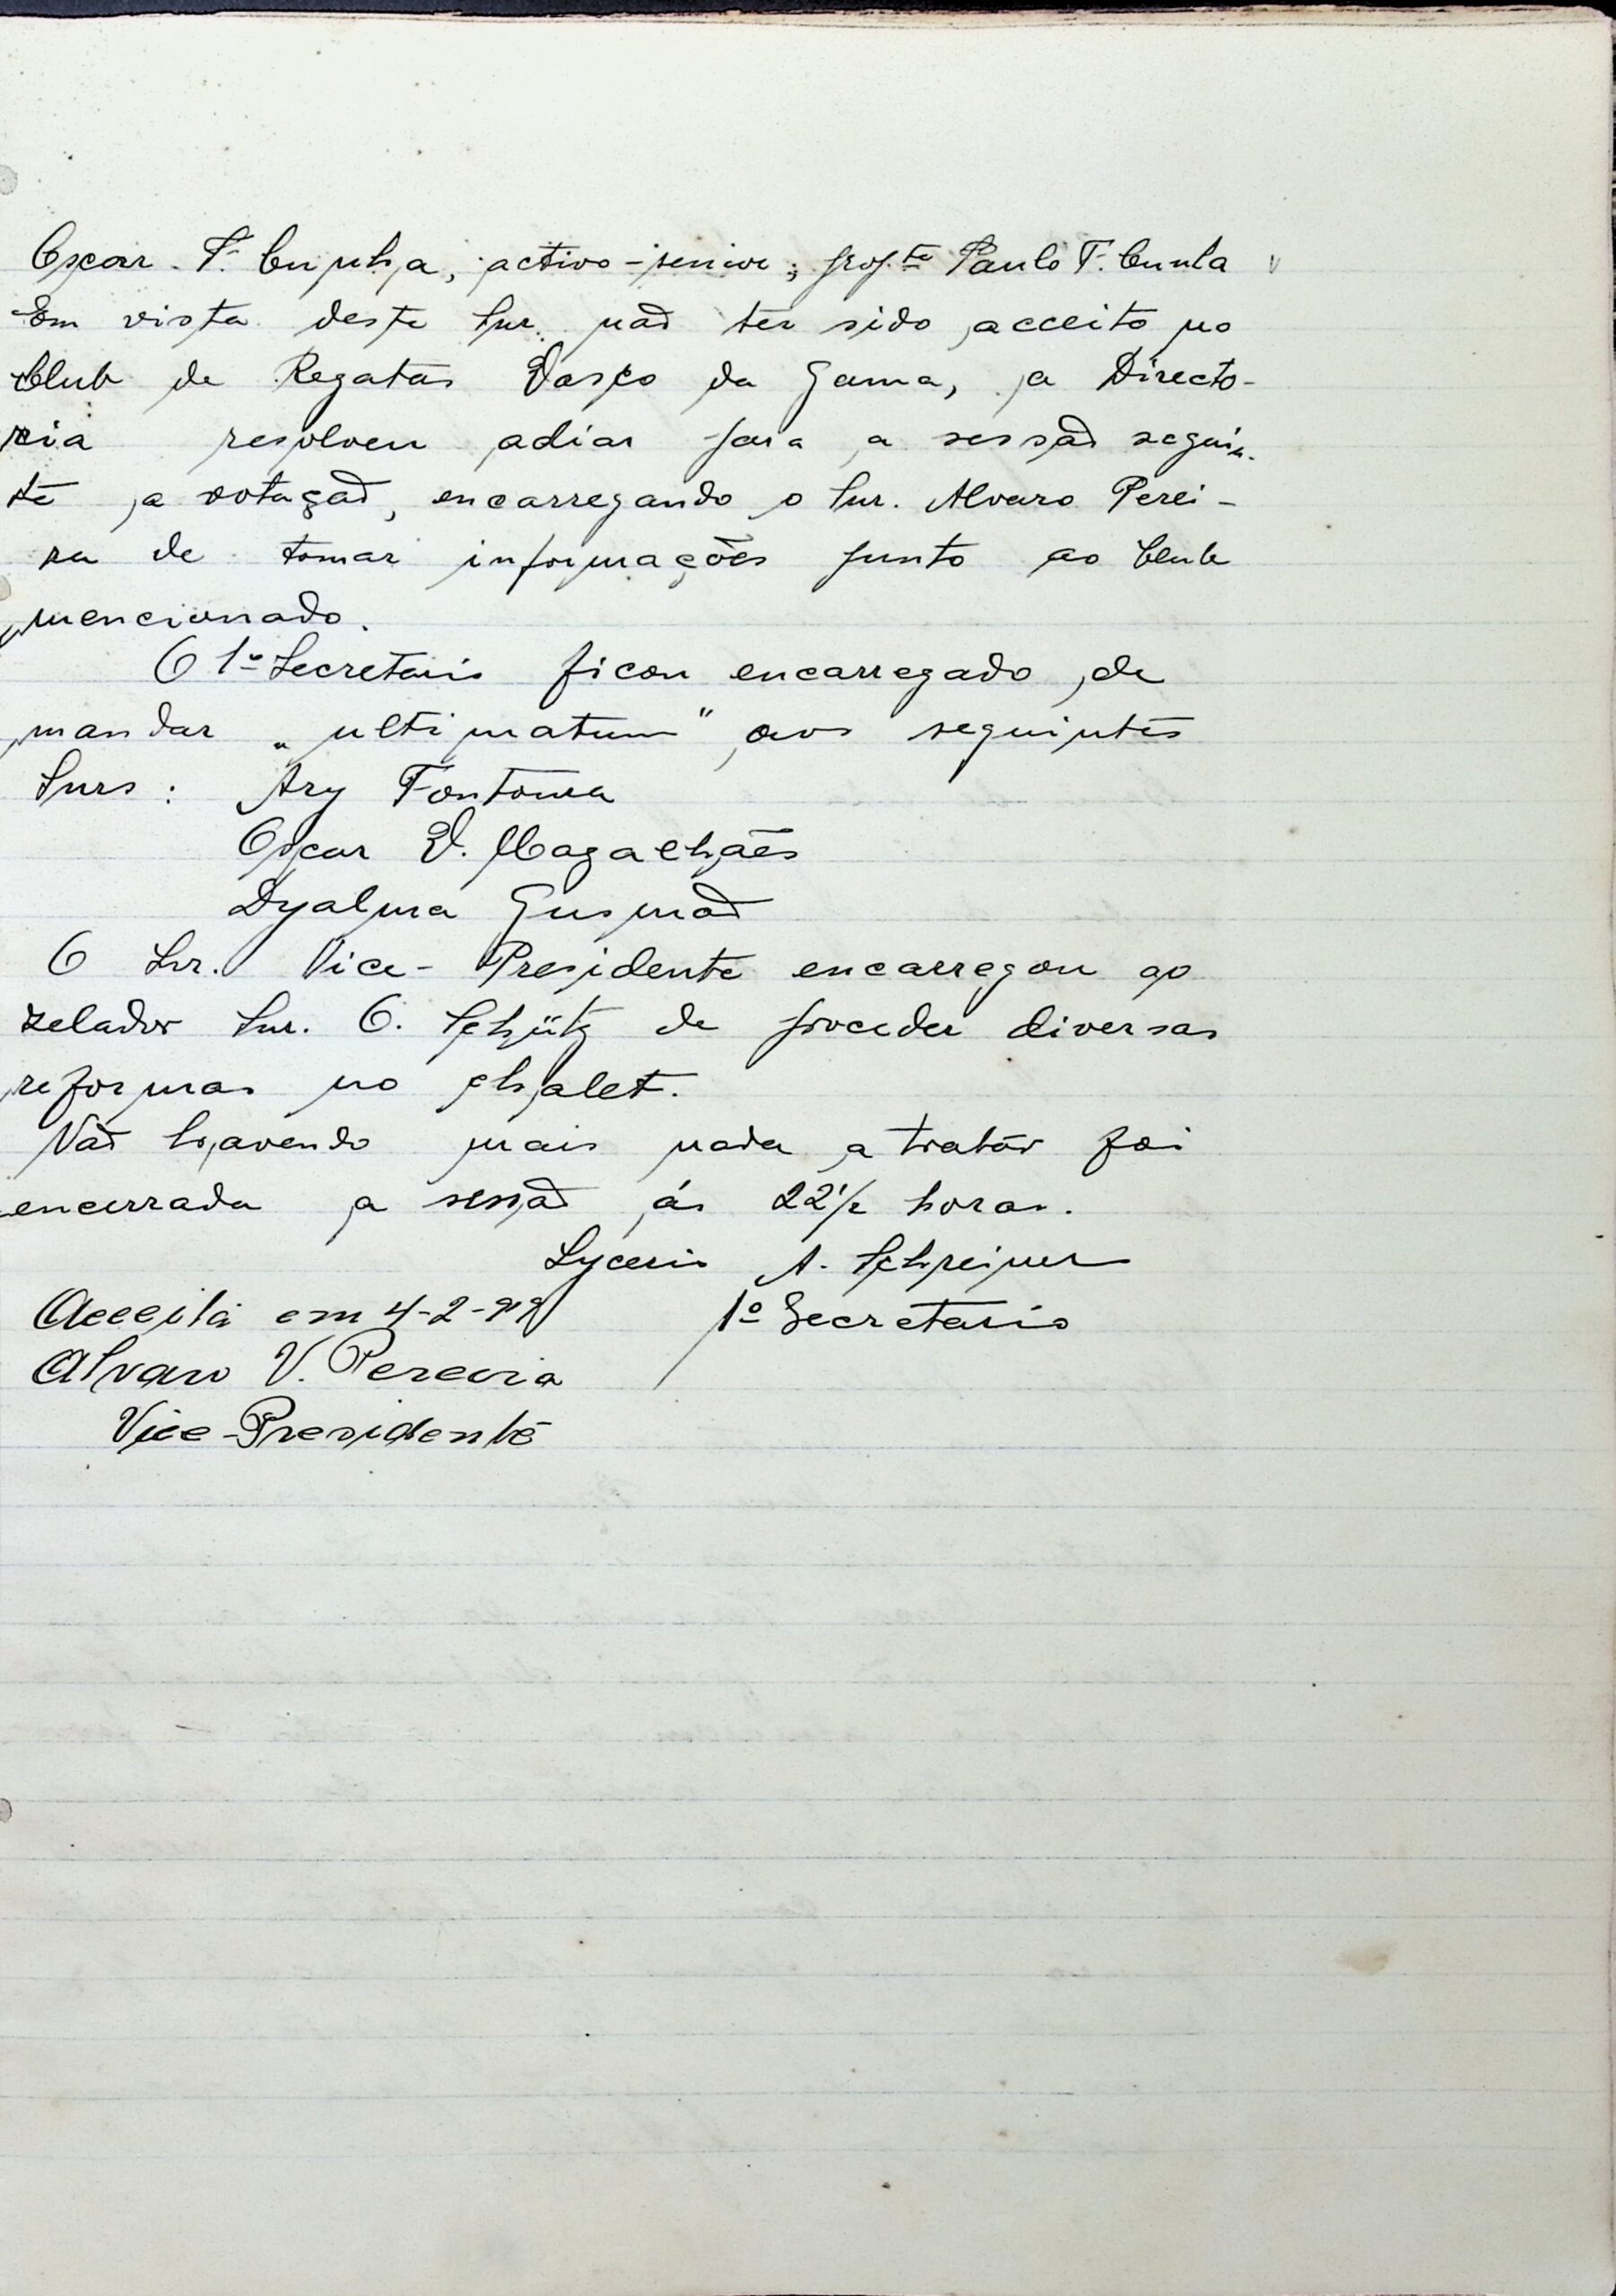 Oscar F. Cunha, activo-senior; prop.te Paulo F. Cunha
Em vista deste Snr. não ter sido acceito no
Club de Regatas Vasco da Gama, a Directo-
ria resolveu adiar para a sessão seguin-
te a votação, encarregando o Snr. Alvaro Perei-
ra de tomar informações junto ao Club
mencionado.
O 1º Secretario ficou encarregado de
mandar „ultimatum" aos seguintes
Snrs: Ary Fontoura
Oscar V. Magalhães
Dyalma Gusmão
O Snr. Vice-Presidente encarregou ao
zelador Snr. O. Schütz de proceder diversas
reformas no chalet.
Não havendo mais nada a tratar foi
encerrada a sessão ás 22½ horas.
Lycerio A. Schreiner
Acceita em 4-2-919 1º Secretario
Alvaro V. Pereira
Vice-Presidente